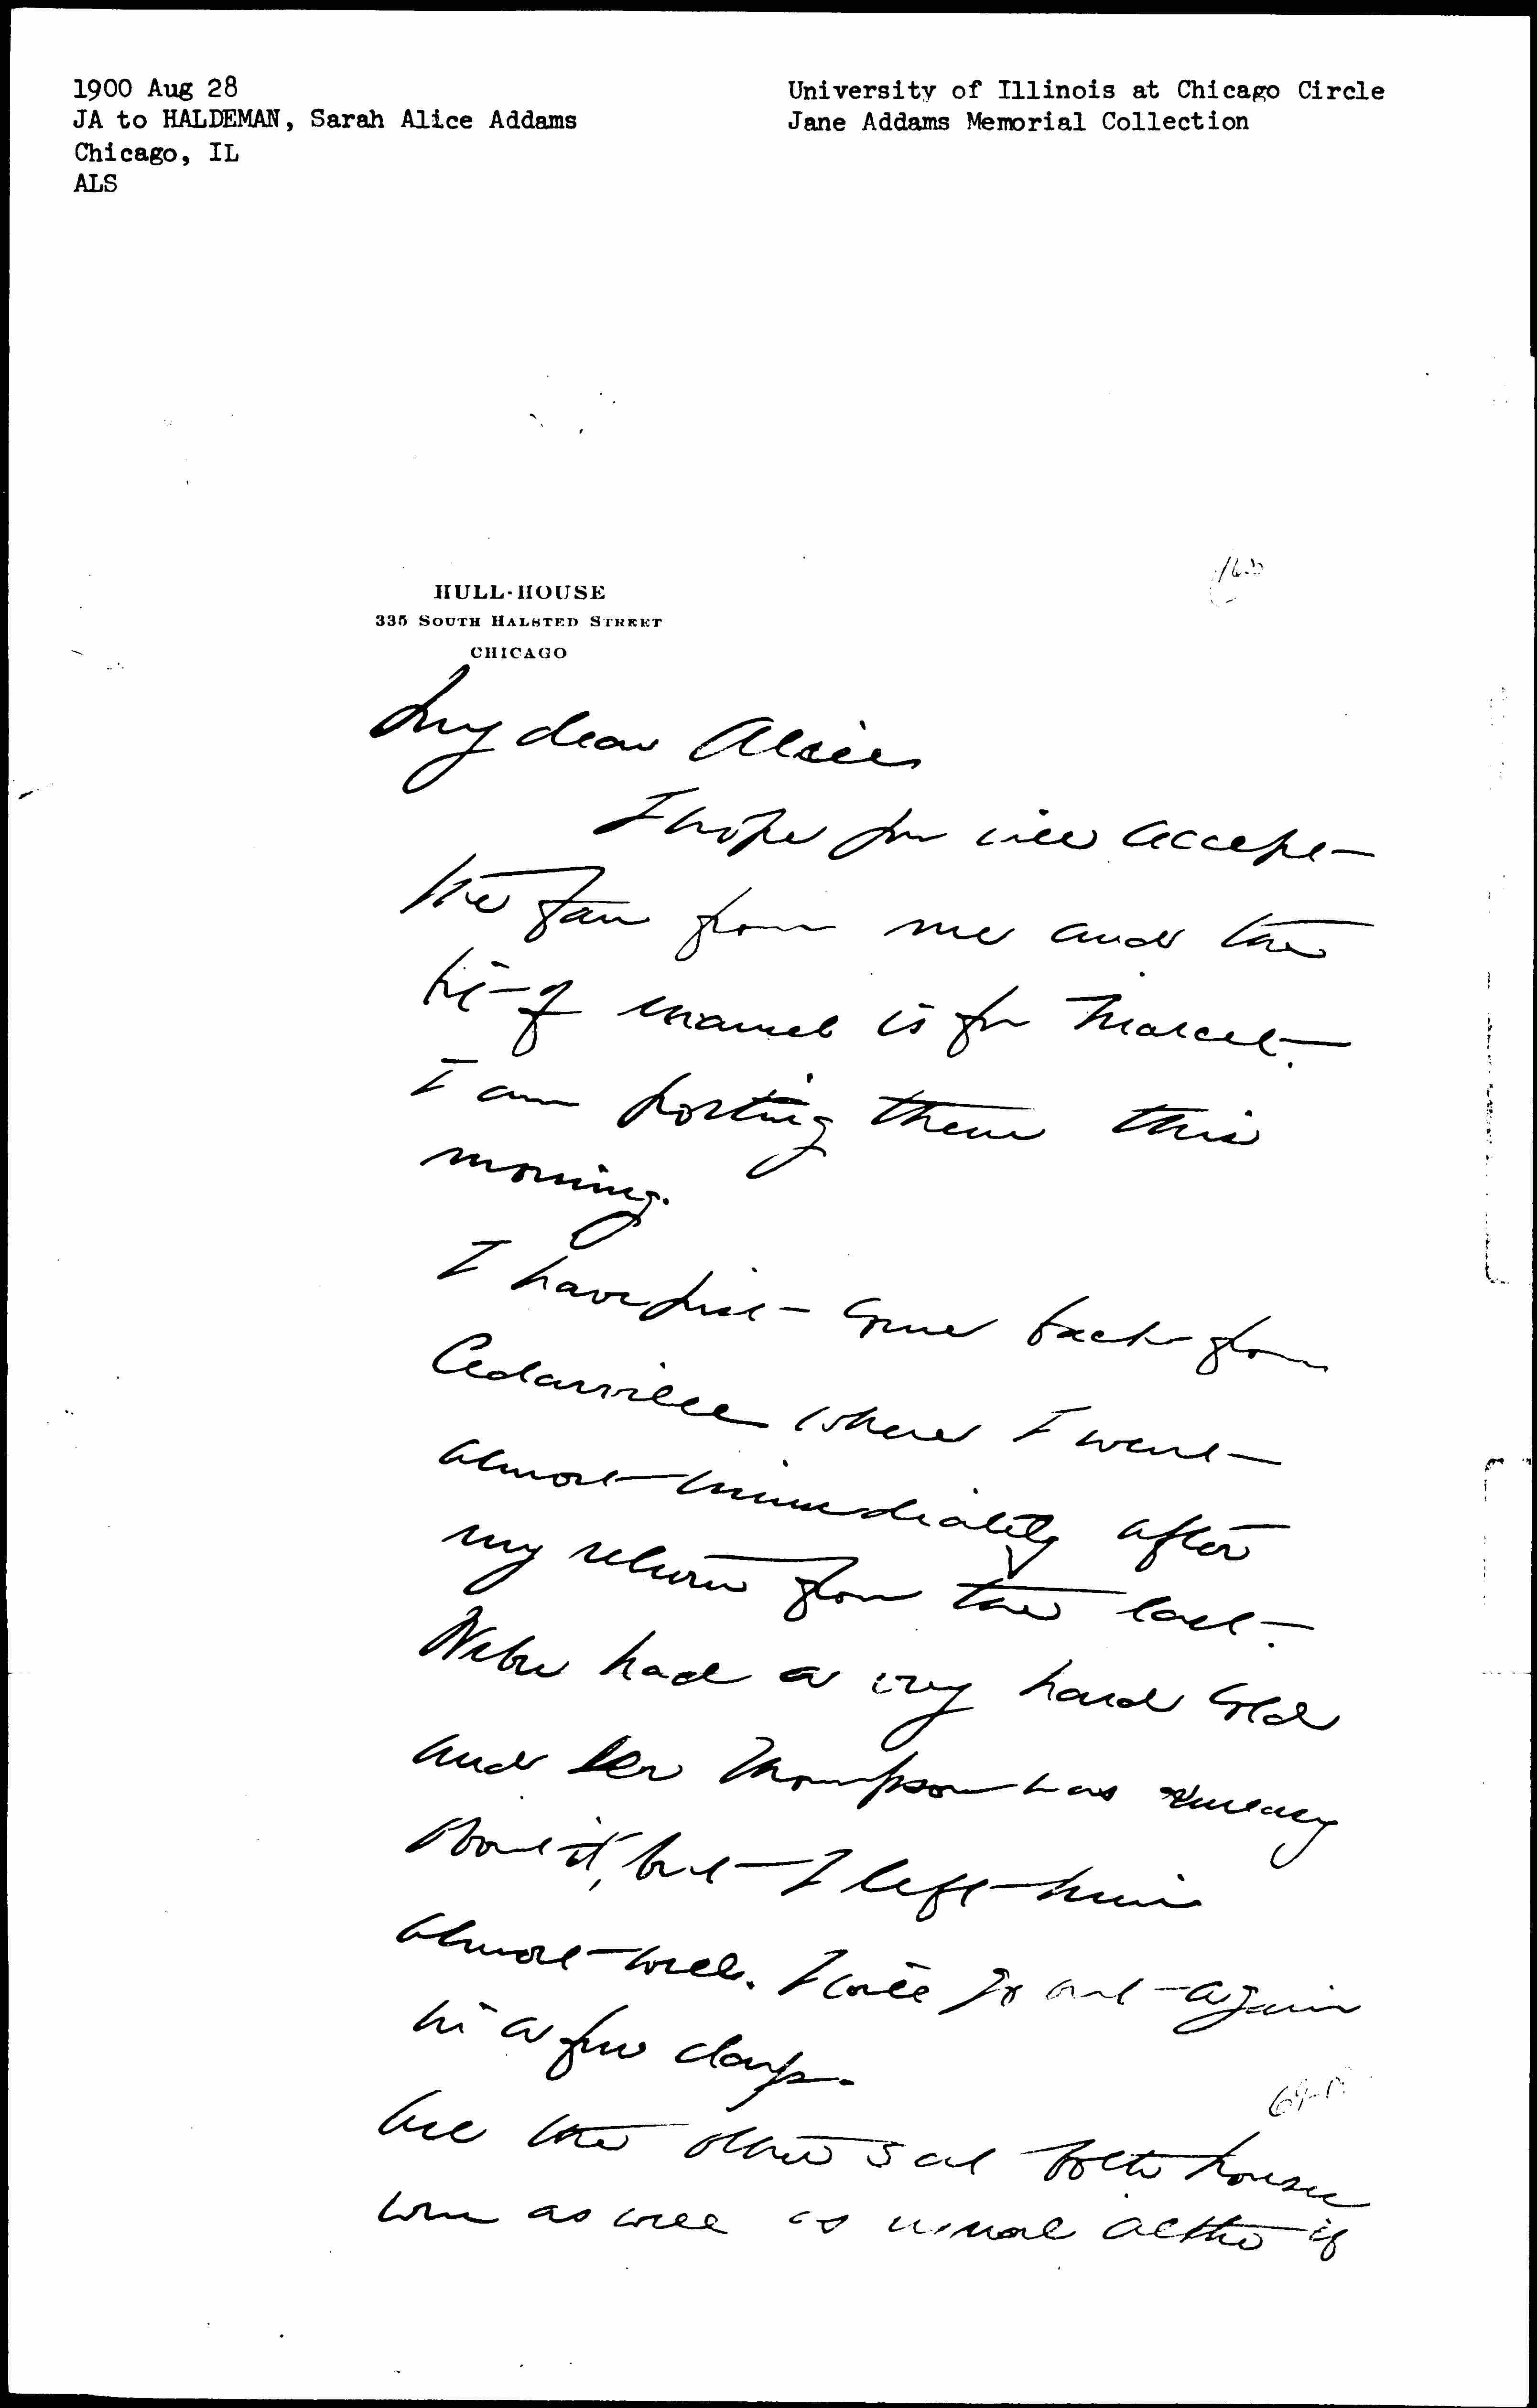 1900 Aug 28
JA to HALDEMAN, Sarah Alice Addams
Chicago, IL
ALS
University of Illinois at Chicago Circle
Jane Addams Memorial Collection
HULL-HOUSE
335 SOUTH HALSTED STREET
CHICAGO
My dear Alice
I hope you will accept
the fan from me and the
bit of enamel is for Marcet.
I am posting them this
morning.
I have just come back from
Cedarville where I went
almost immediately after
my return from the East.
Weber had a very hard cold
and Dr Thompson was uneasy
about it, but I left him
almost well. I will go out again
in a few days.
All the others at both houses
were as well as usual altho if